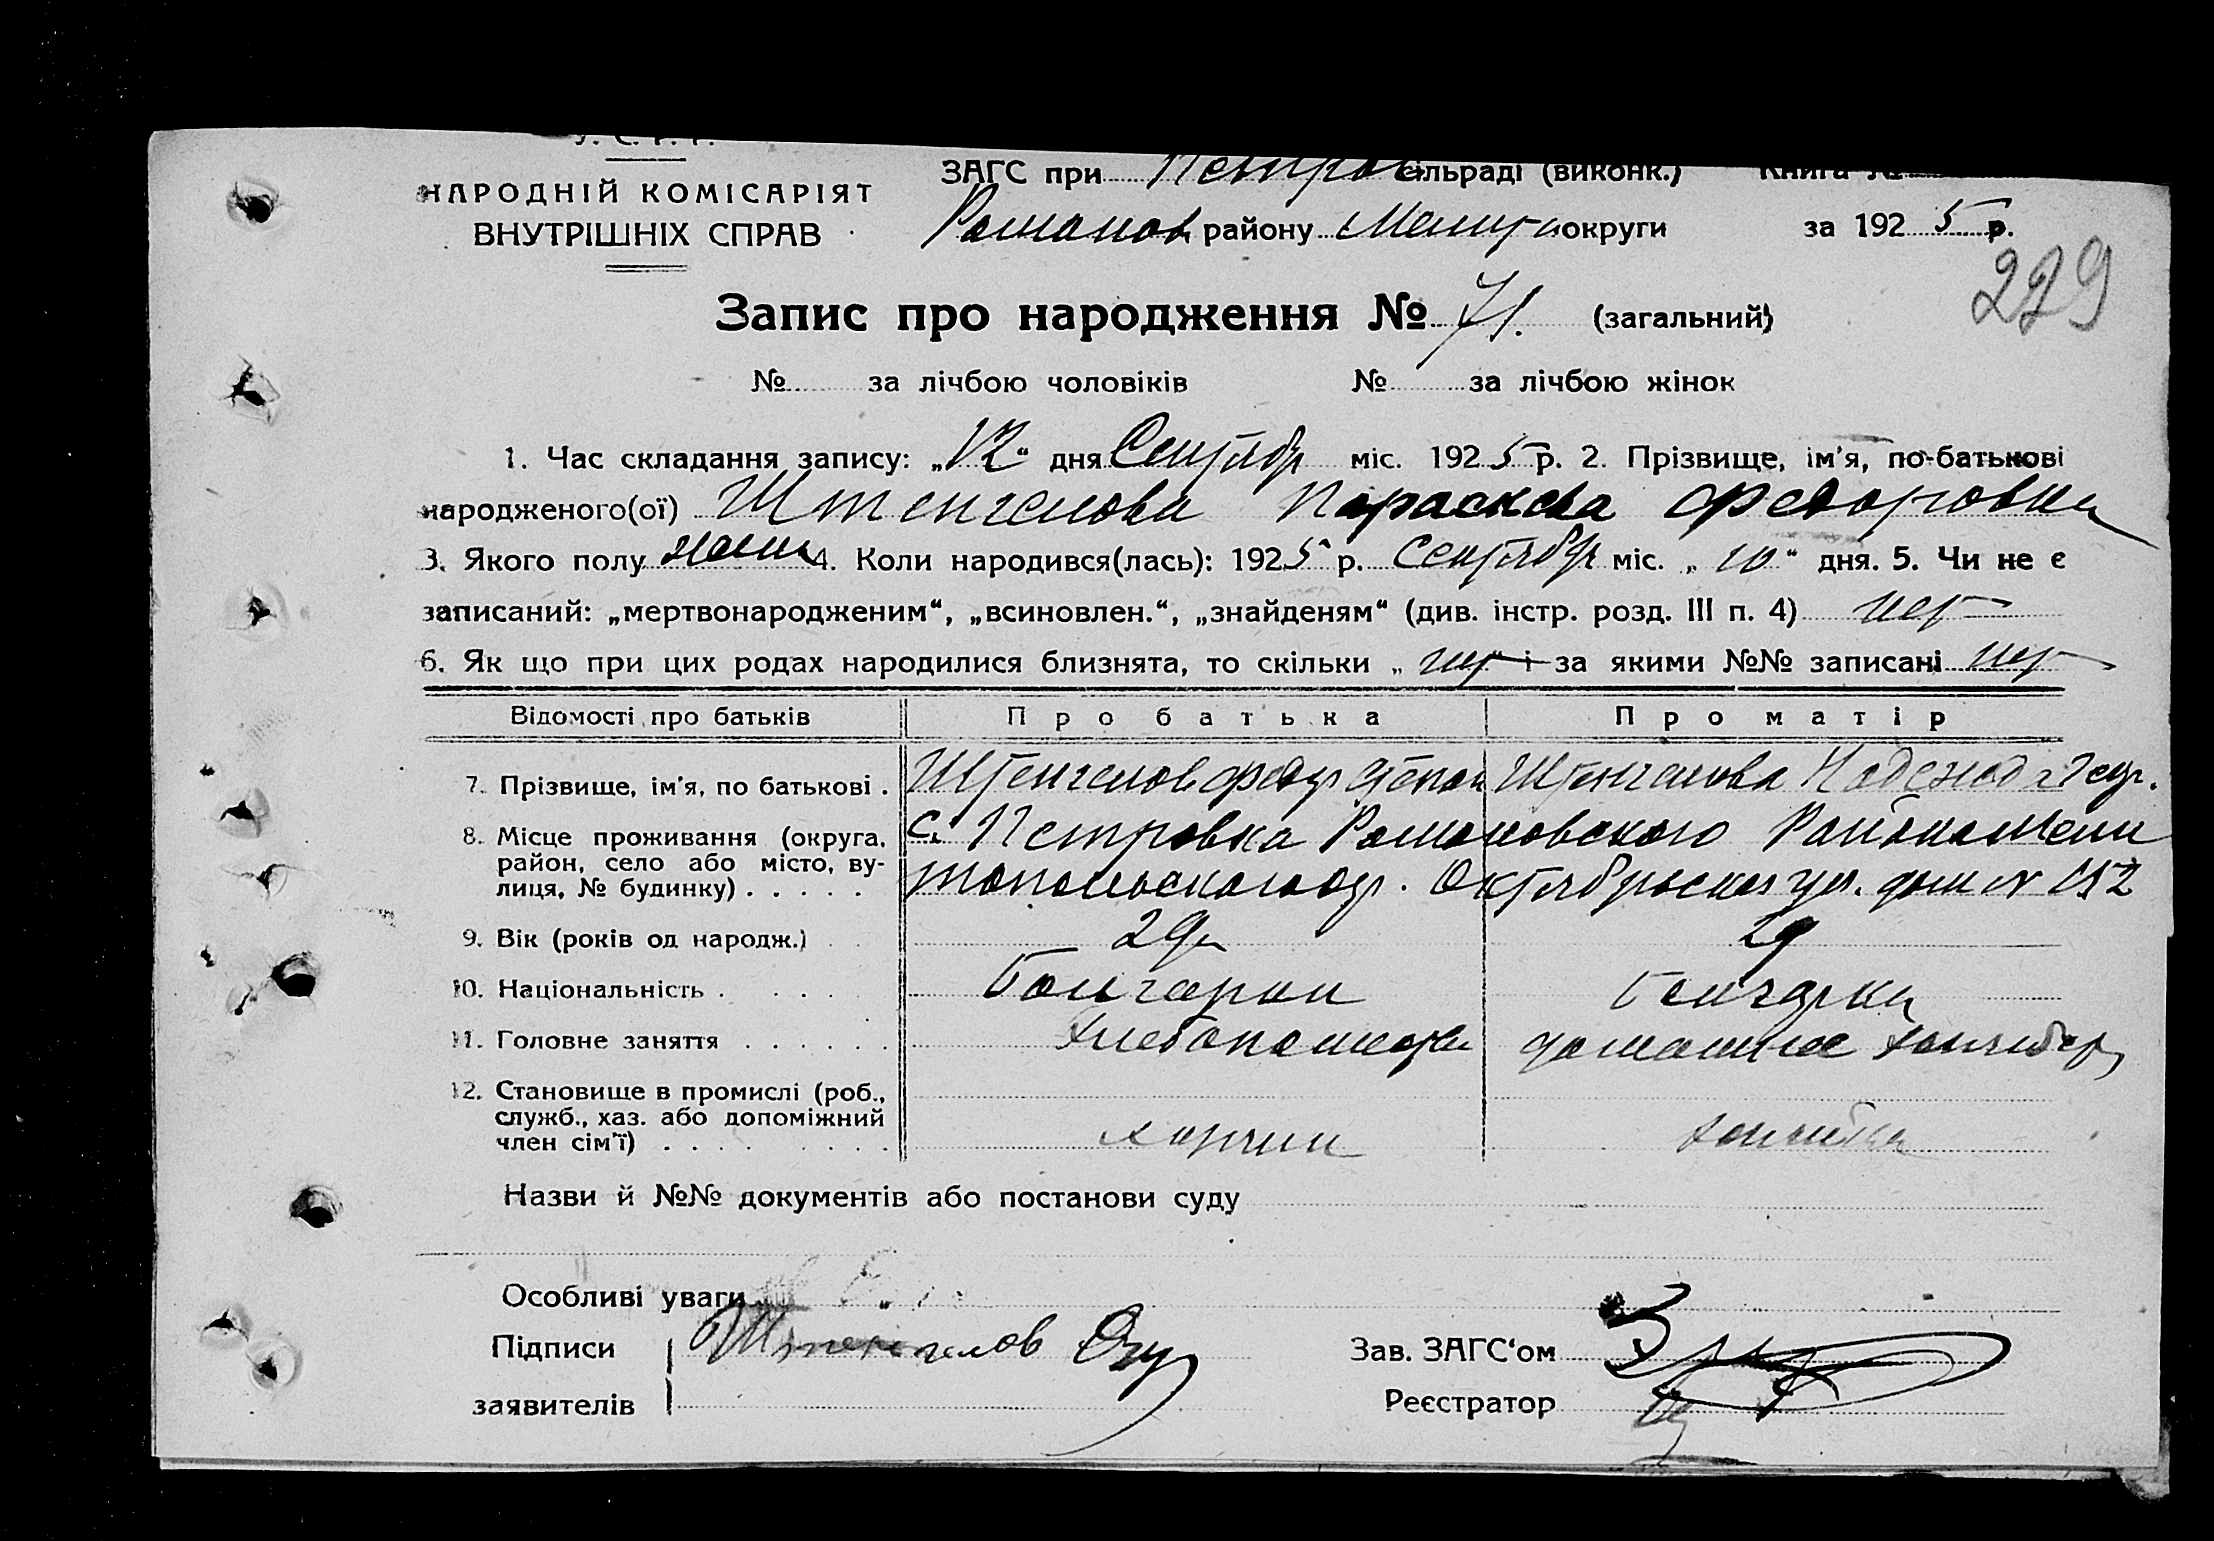 У. С. Р. Р.
НАРОДНІЙ КОМІСАРІЯТ
ВНУТРІШНІХ СПРАВ
ЗАГС при Петров сільраді (виконк.) Книга №
Романов району Мелит округи за 1925 р.
229
Запис про народження № 71. (загальний)
№ за лічбою чоловіків № за лічбою жінок
1. Час складання запису: „12“ дня Сентябр міс. 1925 р. 2. Прізвище, ім'я, по-батькові
народженого(ої) Штенгелова Параскева Федоровна
3. Якого полу жен 4. Коли народився(лась): 1925 р. Сентябр міс. „10“ дня. 5. Чи не є
записаний: „мертвонародженим“, „всиновлен.“, „знайденям“ (див. інстр. розд. III п. 4) нет
6. Як що при цих родах народилися близнята, то скільки „нет“ і за якими №№ записані нет
Відомості про батьків Про батька Про матір
7. Прізвище, ім'я, по батькові . Штенгелов Федор Степан Штенгелова Надежда
8. Місце проживання (округа, с. Петровка Романовского Района Мели
район, село або місто, ву-
лиця, № будинку) . . . . . топольского окр. Октябрьская ул. дом № 152
9. Вік (років од народж.) 29 29
10. Національність . . . . . Болгарин Болгарка
11. Головне заняття . . . . . . Хлебопашество домашнее
12. Становище в промислі (роб.,
служб., хаз. або допоміжний
член сім'ї) . . . . . . . . хозяин хозяйка
Назви й №№ документів або постанови суду
Особливі уваги
Підписи Штенгелов
заявителів
Зав. ЗАГС'ом
Реєстратор